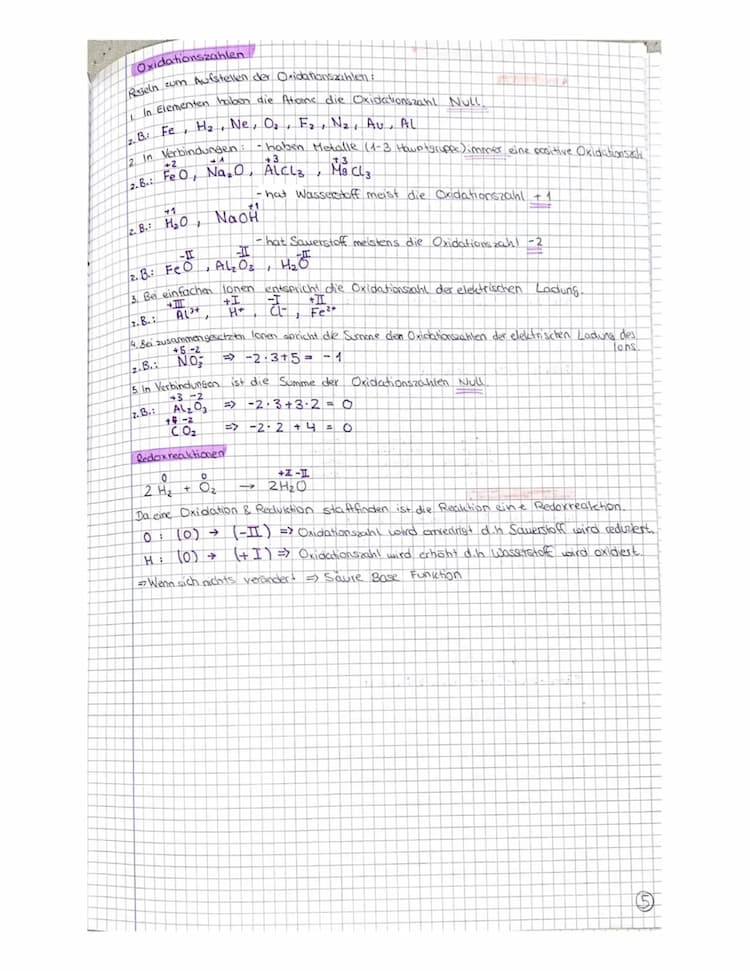 Oxidationszahlen
Regeln zum Aufstellen der Oxidationszahlen:
1. In Elementen haben die Atome die Oxidationszahl Null.
z.B.: Fe, H₂, Ne, O₂, F₂, N₂, Au, Al
2. In Verbindungen: - haben Metalle (1-3 Hauptgruppe) immer eine positive Oxidationszahl
+2 +1 +3 +3
z.B.: FeO, Na₂O, AlCl₃, MgCl₃
- hat Wasserstoff meist die Oxidationszahl +1
+1 +1
z.B.: H₂O, NaOH
- hat Sauerstoff meistens die Oxidationszahl -2
-II -II -II
z.B.: FeO, Al₂O₃, H₂O
3. Bei einfachen Ionen entspricht die Oxidationszahl der elektrischen Ladung.
+III +I -I +II
z.B.: Al³⁺, H⁺, Cl⁻, Fe²⁺
4. Bei zusammengesetzten Ionen spricht die Summe den Oxidationszahlen der elektrischen Ladung des
Ions.
+5 -2
z.B.: NO₃⁻ ⇒ -2·3+5 = -1
5. In Verbindungen ist die Summe der Oxidationszahlen Null
+3 -2
z.B.: Al₂O₃ ⇒ -2·3+3·2 = 0
+4 -2
CO₂ ⇒ -2·2 +4 = 0
Redoxreaktionen
0 0 +I -II
2H₂ + O₂ → 2H₂O
Da eine Oxidation & Reduktion stattfinden ist die Reaktion eine Redoxreaktion.
O: (0) → (-II) ⇒ Oxidationszahl wird erniedrigt d.h Sauerstoff wird reduziert.
H: (0) → (+I) ⇒ Oxidationszahl wird erhöht d.h Wasserstoff wird oxidiert.
⇒ Wenn sich nichts verändert ⇒ Säure Base Funktion
5